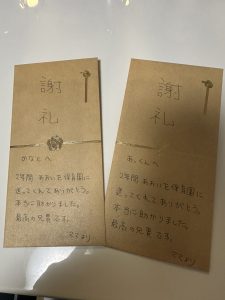 謝
礼
かなとへ
2年間 あおいを保育園に
送ってくれてありがとう。
本当に助かりました。
最高の兄貴です。
ママより
謝
礼
あ、くんへ
2年間 あおいを保育園に
送ってくれてありがとう。
本当に助かりました。
最高の兄貴です。
ママより